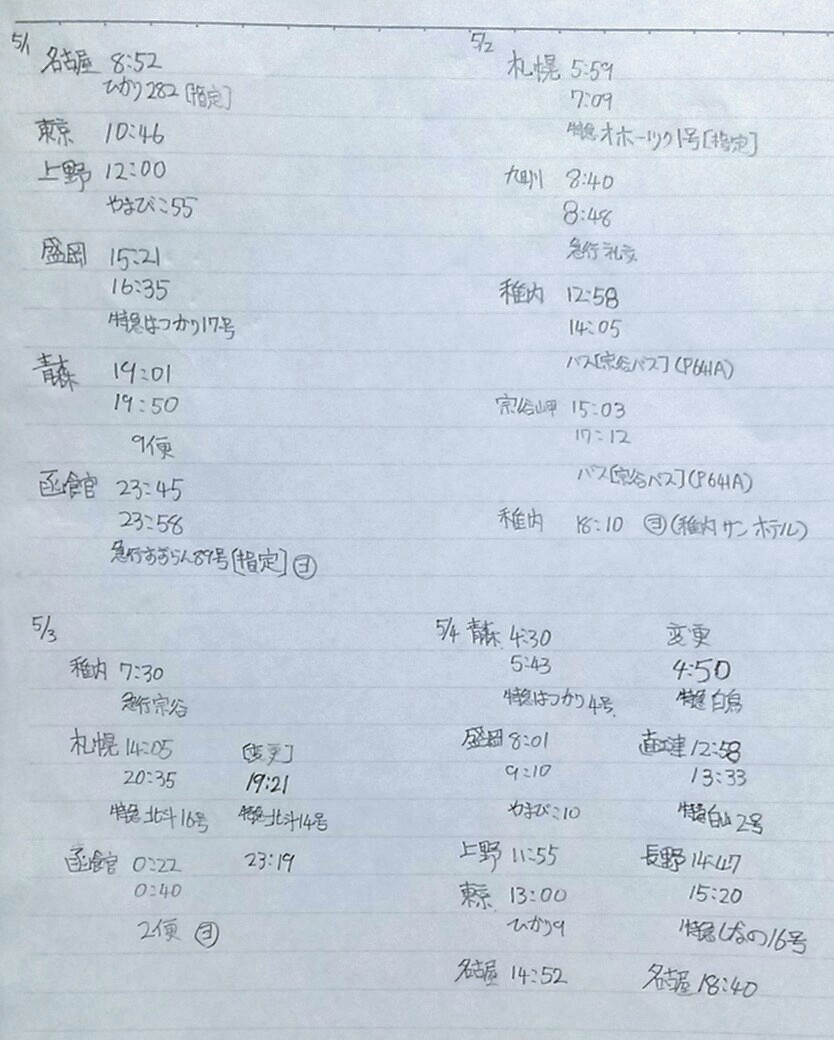 5/1
名古屋 8:52
ひかり282 [指定]
東京 10:46
上野 12:00
やまびこ55
盛岡 15:21
16:35
特急はつかり17号
青森 19:01
19:50
9便
函館 23:45
23:58
急行すずらん89号[指定] ㋵
5/2
札幌 5:59
7:09
特急オホーツク1号[指定]
旭川 8:40
8:48
急行礼文
稚内 12:58
14:05
バス[宗谷バス](P641A)
宗谷岬 15:03
17:12
バス[宗谷バス](P641A)
稚内 18:10 ㋵(稚内サンホテル)
5/3
稚内 7:30
急行宗谷
札幌 14:05 [変更]
20:35 19:21
特急北斗16号 特急北斗14号
函館 0:22 23:19
0:40
2便 ㋵
5/4 青森 4:30 変更
5:43 4:50
特急はつかり4号 特急白鳥
盛岡 8:01 直江津 12:58
9:10 13:33
やまびこ10 特急白山2号
上野 11:55 長野 14:47
東京 13:00 15:20
ひかり9 特急しなの16号
名古屋 14:52 名古屋 18:40